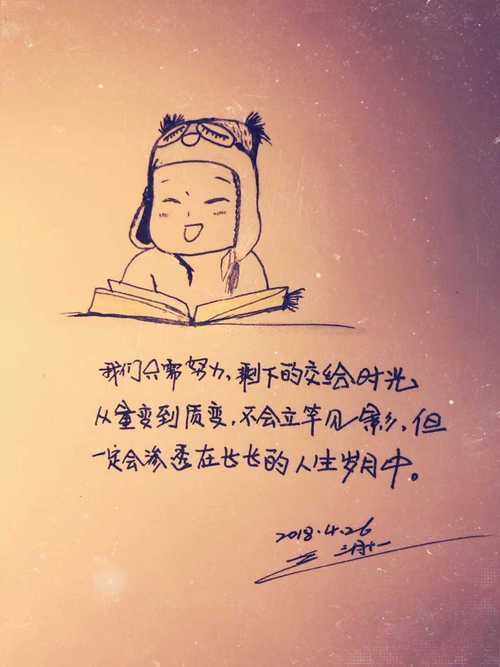 我们只需努力,剩下的交给时光,
从量变到质变,不会立竿见影,但
一定会渗透在长长的人生岁月中。
2018.4.26
三月十一